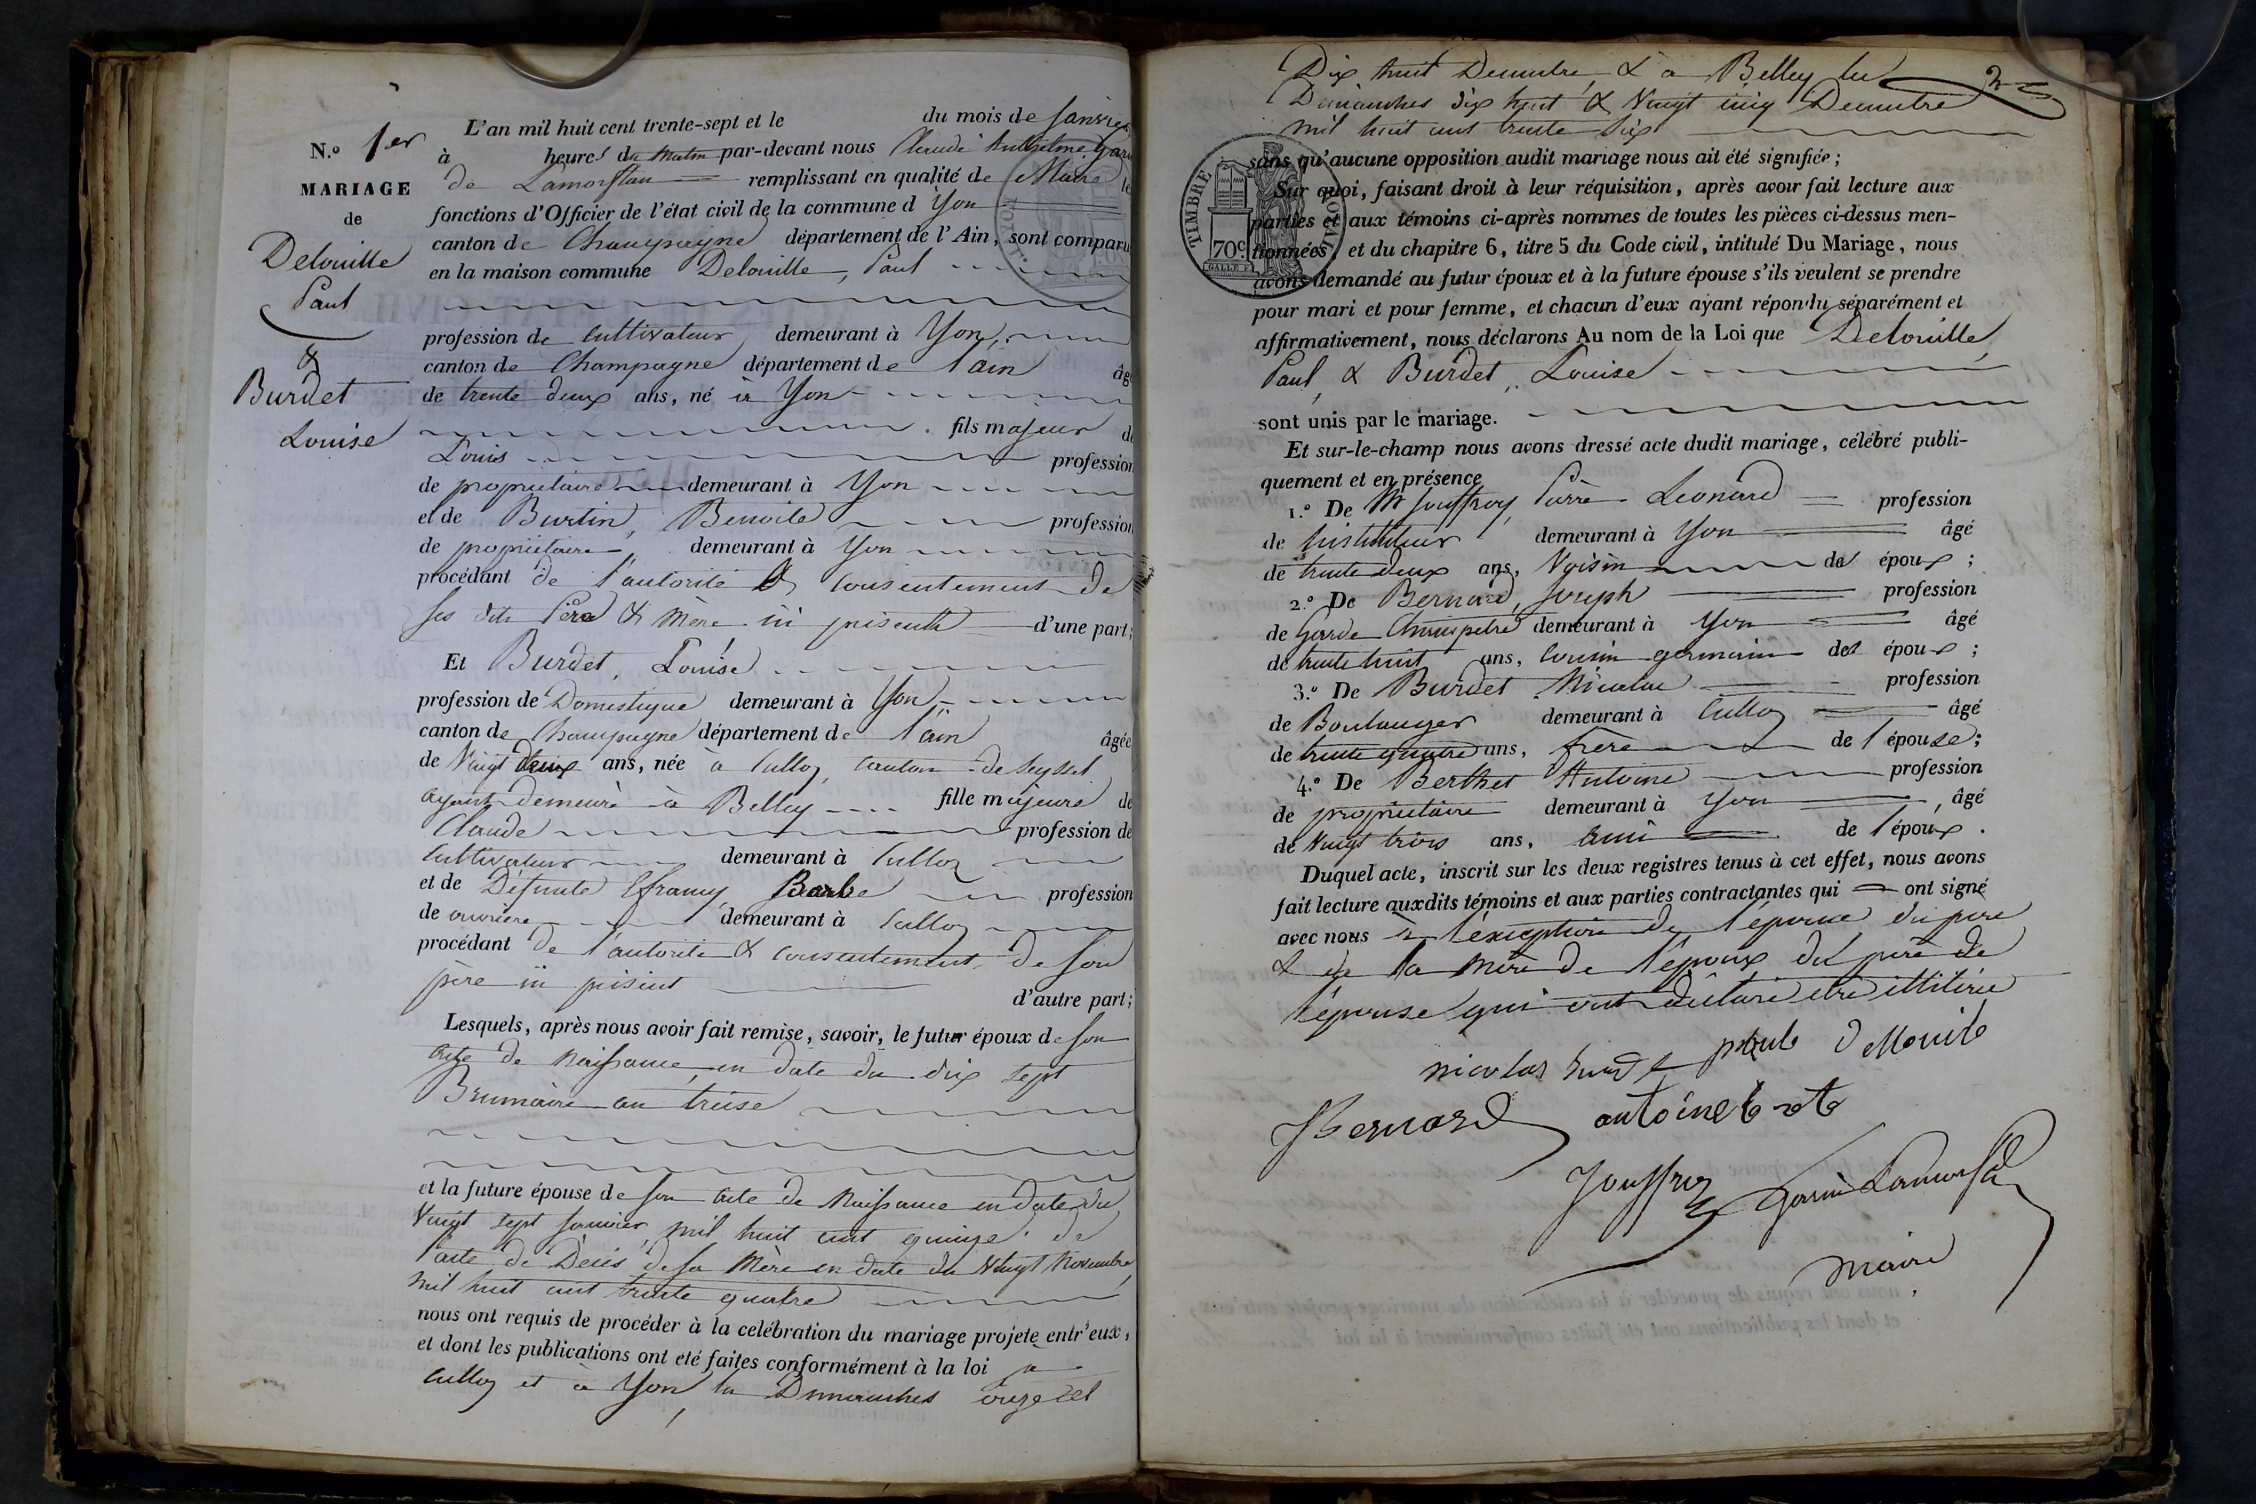 N.º 1er
MARIAGE
de
Delouille
Paul
&
Burdet
Louise
L'an mil huit cent trente-sept et le du mois de Janvier
à heures du Matin par-devant nous Claude Anthelme
de Lamorflan remplissant en qualité de Maire le
fonctions d'Officier de l'état civil de la commune d Yon
canton de Champagne département de l'Ain, sont comparu
en la maison commune Delouille, Paul
profession de Cultivateur demeurant à Yon
canton de Champagne département de l'ain âgé
de trente deux ans, né à Yon
fils majeur de
Louis profession
de propriétaire demeurant à Yon
et de Burtin, Benoite profession
de propriétaire demeurant à Yon
procédant de l'autorité & consentement de
ses dits Père & Mère ici présents d'une part;
Et Burdet, Louise
profession de Domestique demeurant à Yon
canton de Champagne département de l'ain âgée
de Vingt deux ans, née à Culloz, canton de Seyssel
ayant demeuré à Belley fille majeure de
Claude profession de
Cultivateur demeurant à Culloz
et de Défunte Barbe profession
de ouvrière demeurant à Culloz
procédant de l'autorité & consentement de son
père ici présent
d'autre part;
Lesquels, après nous avoir fait remise, savoir, le futur époux de son
acte de Naissance, en date du dix sept
Brumaire an treise
et la future épouse de son acte de Naissance en date du
Vingt sept Janvier, mil huit cent quinze de
l'acte de Décès de sa Mère en date du Vingt Novembre
mil huit cent trente quatre
nous ont requis de procéder à la celébration du mariage projeté entr'eux,
et dont les publications ont eté faites conformément à la loi à
Culloz et à Yon, les Dimanches onze et
Dix huit Decembre, & a Belley les
Dimanches dix huit & Vingt cinq Decembre
mil huit cent trente six
TIMBRE ROYAL
70 c.
sans qu'aucune opposition audit mariage nous ait été signifiée;
Sur quoi, faisant droit à leur réquisition, après avoir fait lecture aux
parties et aux témoins ci-après nommes de toutes les pièces ci-dessus men-
tionnées, et du chapitre 6, titre 5 du Code civil, intitulé Du Mariage, nous
avons demandé au futur époux et à la future épouse s'ils veulent se prendre
pour mari et pour femme, et chacun d'eux ayant répondu séparément et
affirmativement, nous déclarons Au nom de la Loi que Delouille,
Paul & Burdet, Louise
sont unis par le mariage.
Et sur-le-champ nous avons dressé acte dudit mariage, célébré publi-
quement et en présence
1.º De Mr Jouffroy, Pierre Leonard profession
de Instituteur demeurant à Yon âgé
de trente deux ans, Voisin de époux;
2.º De Bernard, Joseph profession
de Garde Champetre demeurant à Yon âgé
de trente huit ans, Cousin germain del époux;
3.º De Burdet Nicolas profession
de Boulanger demeurant à Culloz âgé
de trente quatre ans, frère de l'épouse;
4.º De Berthet Antoine profession
de propriétaire demeurant à Yon, âgé
de Vingt trois ans, ami de l'époux.
Duquel acte, inscrit sur les deux registres tenus à cet effet, nous avons
fait lecture auxdits témoins et aux parties contractantes qui ont signé
avec nous à l'exception de l'épouse du père
& de la Mère de l'époux du père de
l'épouse qui ont déclaré etre illitérés
nicolas
JBernard
Jouffroy
maire